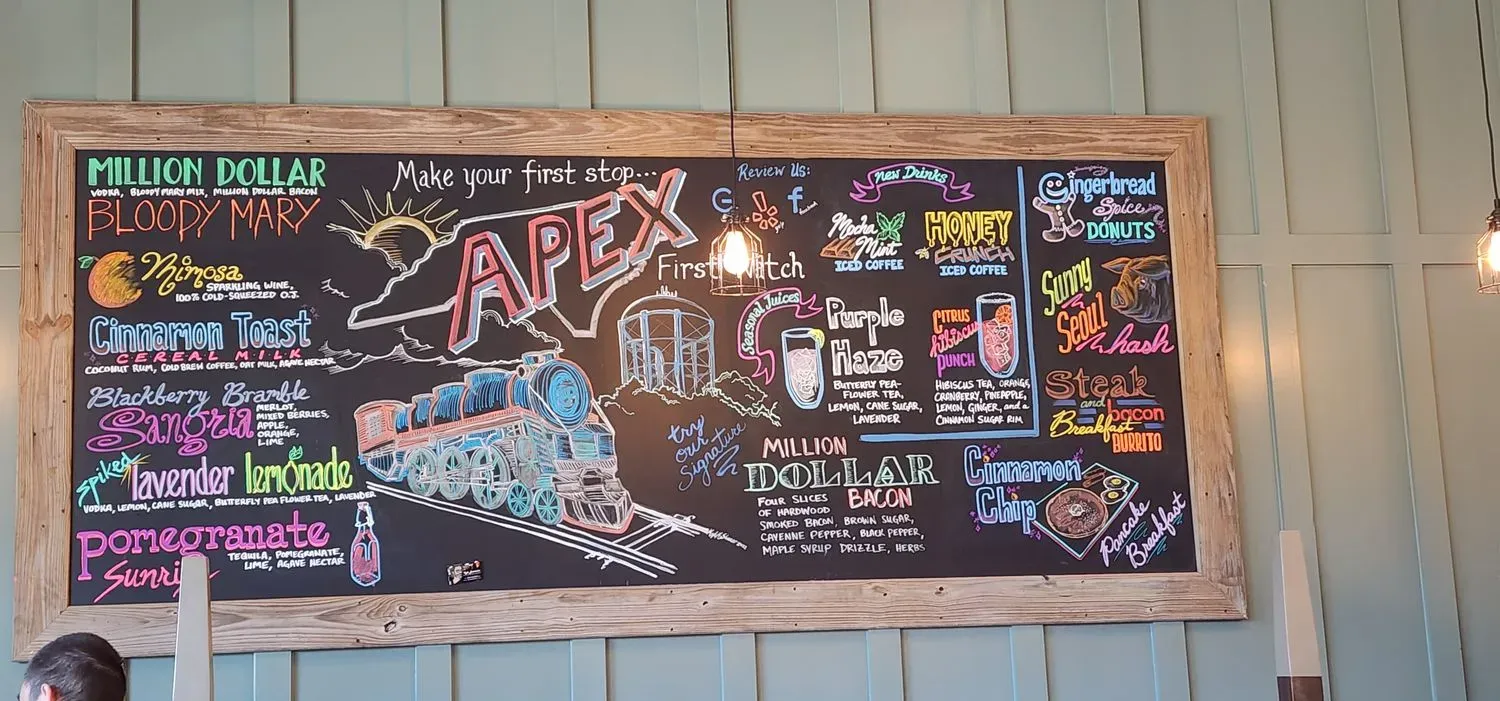 MILLION DOLLAR
VODKA, BLOODY MARY MIX, MILLION DOLLAR BACON
BLOODY MARY
Mimosa
SPARKLING WINE,
100% COLD-SQUEEZED O.J.
Cinnamon Toast
CEREAL MILK
COCONUT RUM, COLD BREW COFFEE, OAT MILK, AGAVE NECTAR
Blackberry Bramble
Sangria
MERLOT,
MIXED BERRIES,
APPLE,
ORANGE,
LIME
Spiked
lavender lemonade
VODKA, LEMON, CANE SUGAR, BUTTERFLY PEA FLOWER TEA, LAVENDER
pomegranate
Sunrise
TEQUILA, POMEGRANATE,
LIME, AGAVE NECTAR
Make your first stop...
APEX
First Watch
Review Us:
G
f
facebook
try
our
signature
MILLION
DOLLAR
BACON
FOUR SLICES
OF HARDWOOD
SMOKED BACON, BROWN SUGAR,
CAYENNE PEPPER, BLACK PEPPER,
MAPLE SYRUP DRIZZLE, HERBS
New Drinks
Mocha
Mint
ICED COFFEE
HONEY
CRUNCH
ICED COFFEE
Seasonal Juices
Purple
Haze
BUTTERFLY PEA-
FLOWER TEA,
LEMON, CANE SUGAR,
LAVENDER
CITRUS
hibiscus
PUNCH
HIBISCUS TEA, ORANGE,
CRANBERRY, PINEAPPLE,
LEMON, GINGER, and a
CINNAMON SUGAR RIM
Gingerbread
Spice
DONUTS
Sunny
Seoul
hash
Steak
and bacon
Breakfast
BURRITO
Cinnamon
Chip
Pancake
Breakfast